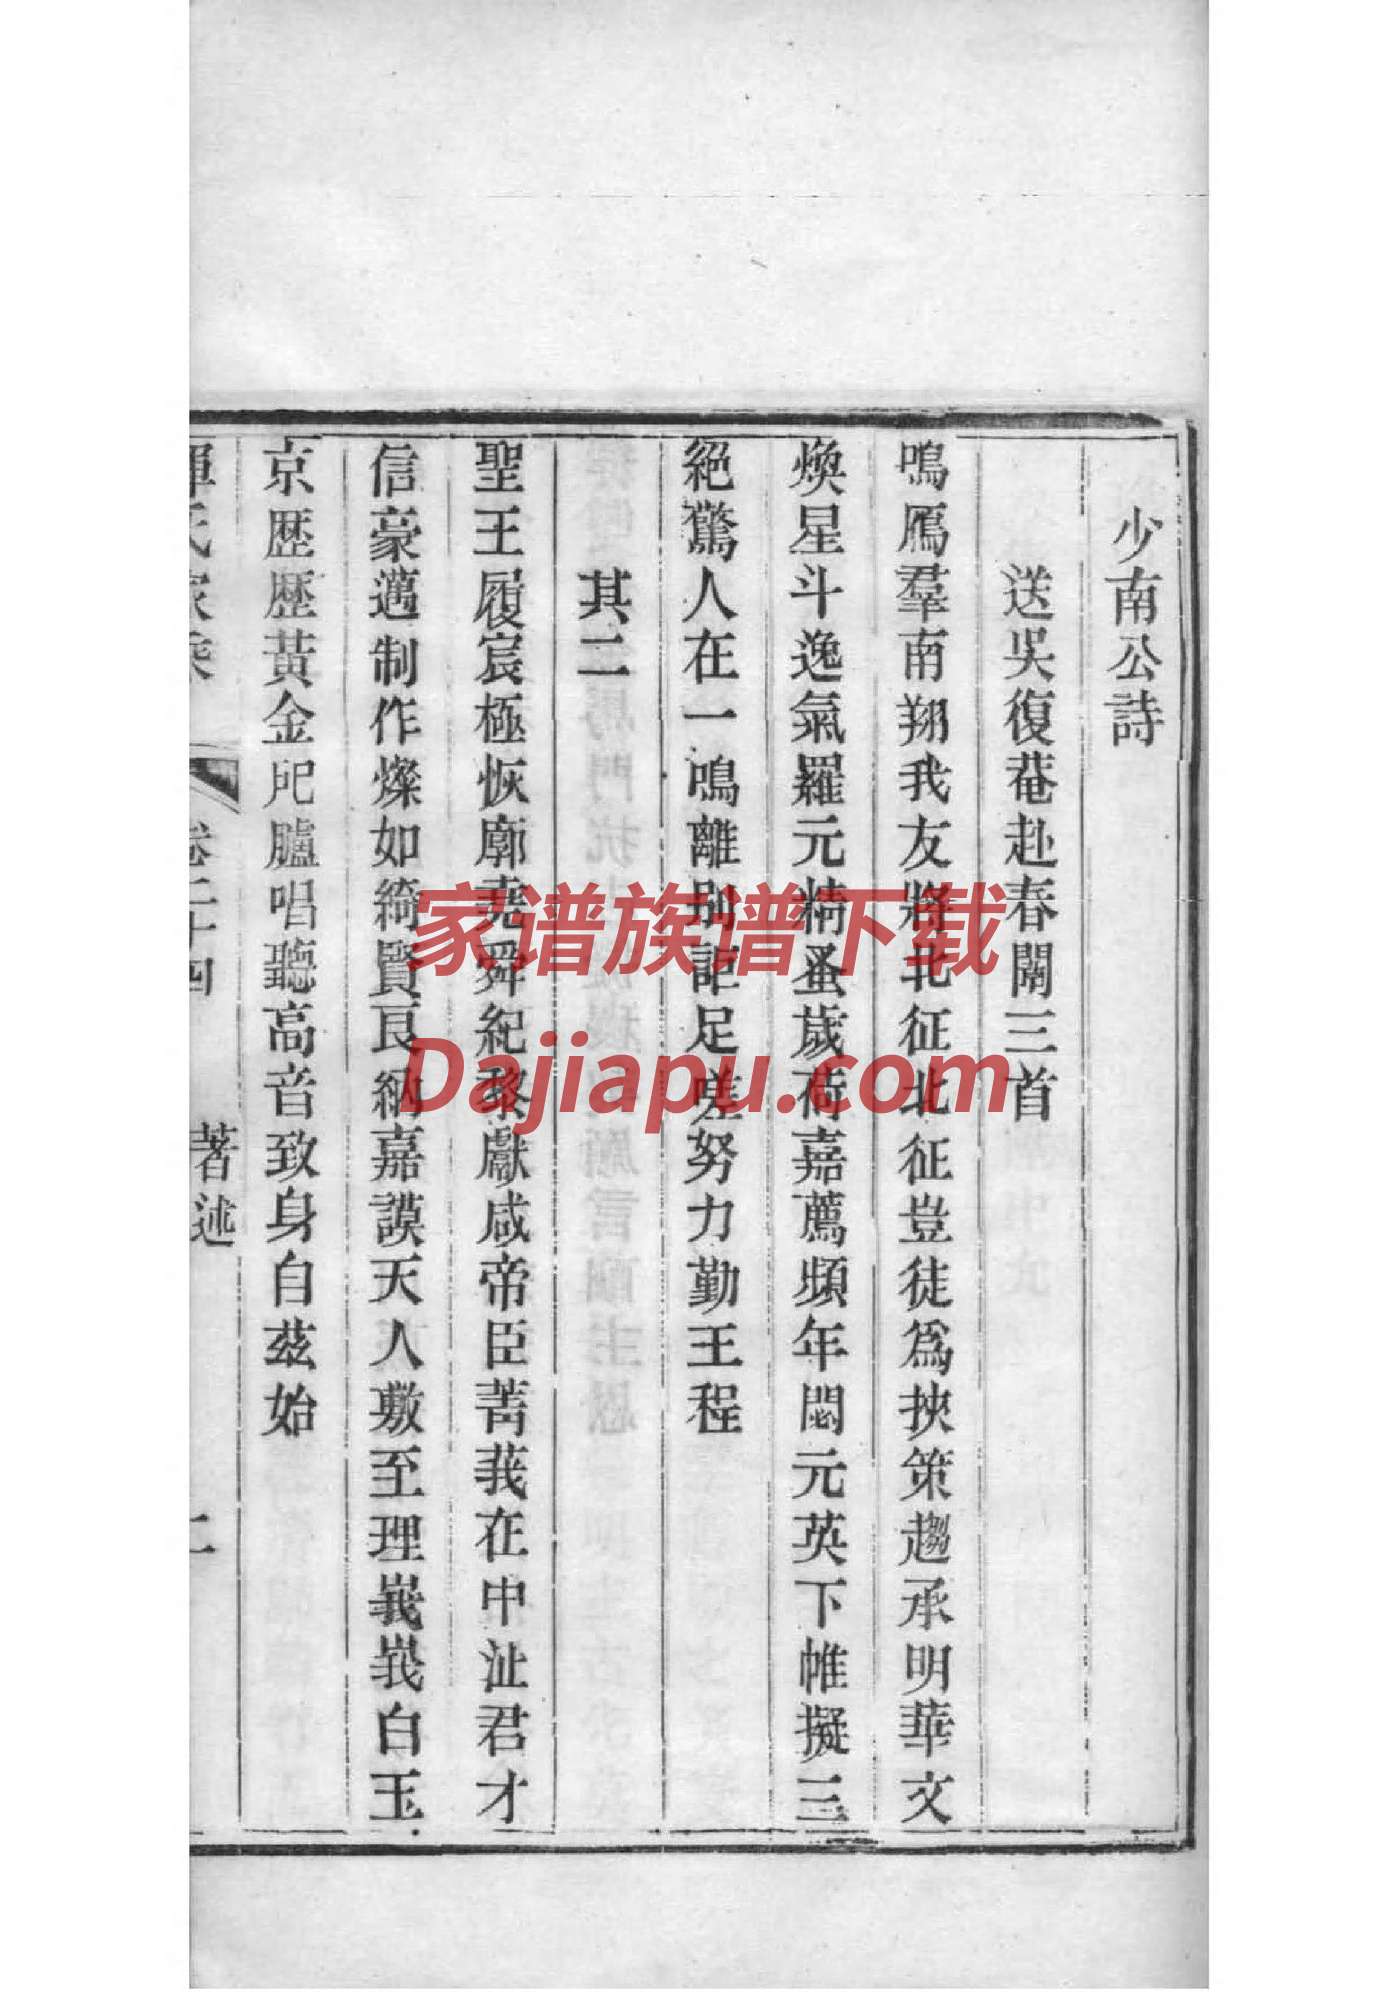 少南公詩
送吳復菴赴春闈三首
鳴鴈羣南翔我友將北征北征豈徒爲挾策趨承明華文
煥星斗逸氣羅元精蚤歲荷嘉薦頻年閟元英下帷擬三
絕驚人在一鳴離別詎足嗟努力勤王程
其二
聖王履宸極恢廓堯舜紀黎獻咸帝臣菁莪在中沚君才
信豪邁制作燦如綺賢良納嘉謨天人敷至理峩峩白玉
京歴歷黃金戺臚唱聽高音致身自茲始
惲氏家乘
卷二十四
著述
家谱族谱下载
Dajiapu.com